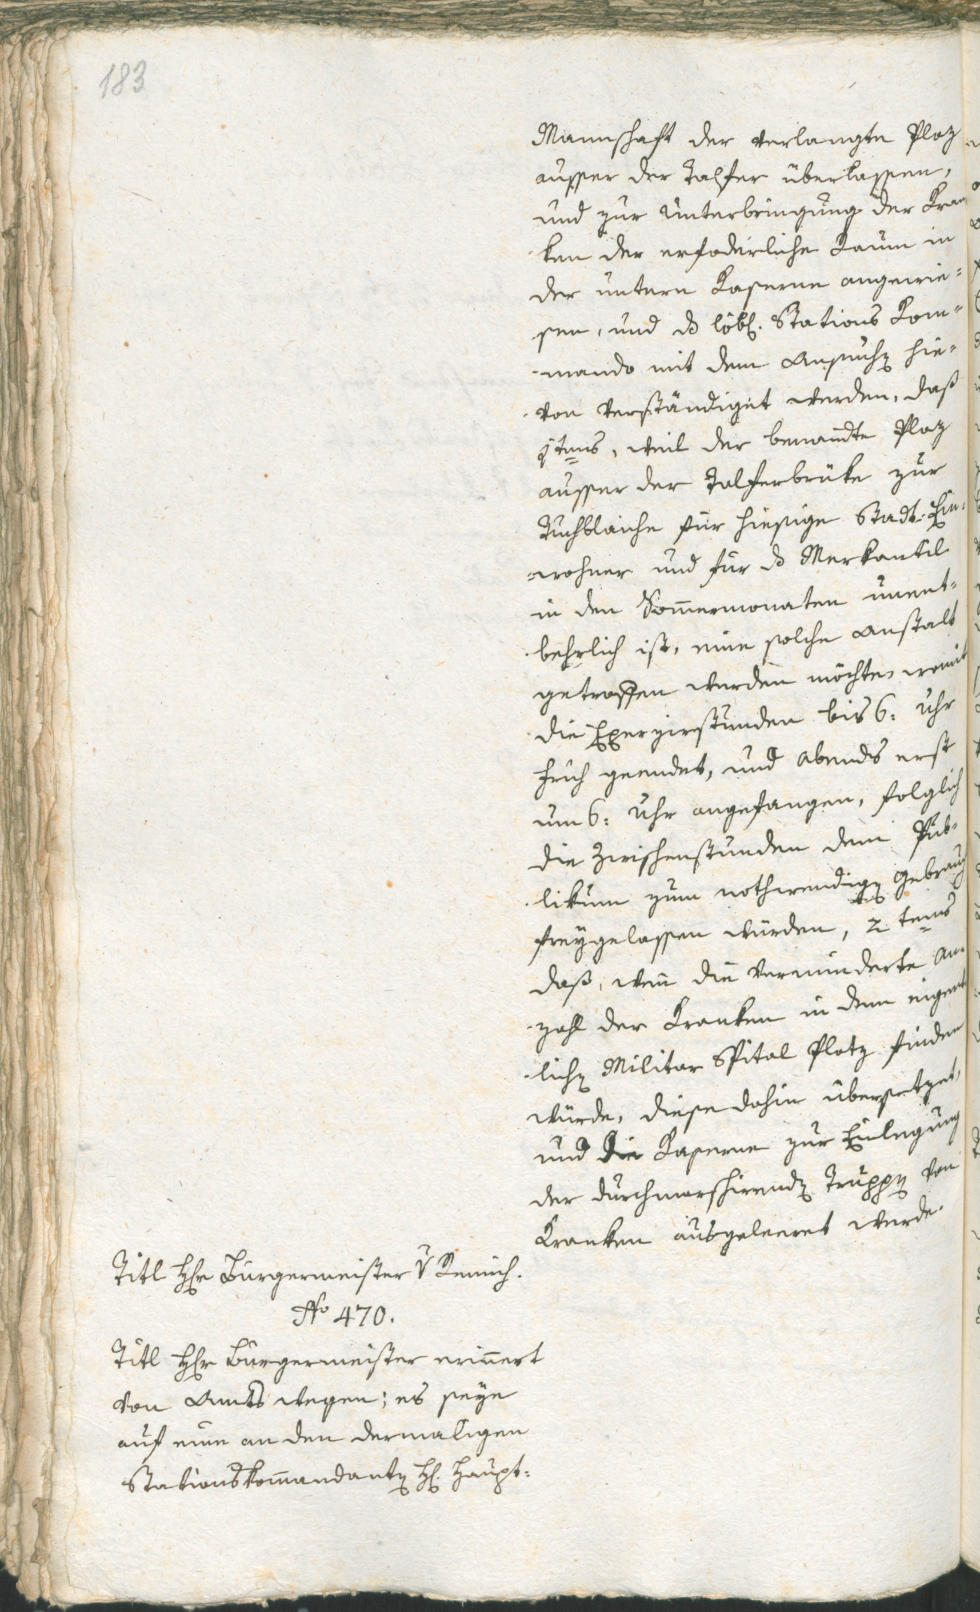 183
Mannschaft der verlangte Plaz
ausser der Talfer überlassen,
und zur Unterbringung der Kran
ken der erfoderliche Raum in
der untern Kaserne angewie=
sen, und d löbl. Stations Kom=
mando mit dem Ansuchen hie=
von verständiget werden, daß
1tens, weil der benannte Plaz
ausser der Talferbrüke zur
Tuchblaiche für hiesige Stadt-Ein=
wohner und für d Merkantil
in den Sommermonaten unent=
behrlich ist, eine solche Anstalt
getroffen werden möchte, womit
die Exerzirstunden bis 6: Uhr
früh geendet, und Abends erst
um 6: Uhr angefangen, folglich
die Zwischenstunden dem Pub=
likum zum nothwendigen Gebrauch
freygelassen würden, 2 tens
daß, wenn die verminderte An=
zahl der Kranken in dem eigent
lichen Militar Spital Platz finden
würde, diese dahin übersetzet,
und die Kaserne zur Einlegung
der durchmarschirenden Truppen von
Kranken ausgeleeret werde.
Titl Hr Bürgermeister v Remich.
No 470.
Titl Hr Bürgermeister erinnert
von Amts wegen; es seye
auf eine an den dermaligen
Stationskommandanten H. Haupt=